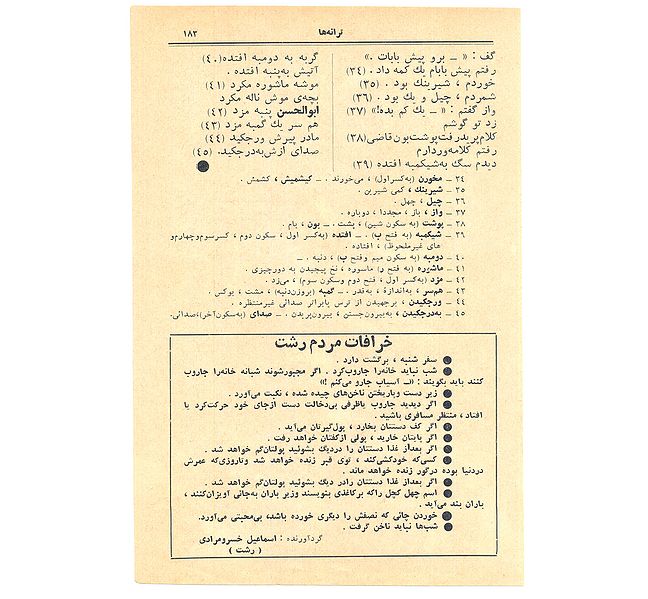 ترانه‌ها
۱۸۳
گف : « ــ برو پیش بابات .»
رفتم پیش بابام یك کمه داد . (۳۴)
خوردم ، شیرینك بود . (۳۵)
شمردم ، چیل و یك بود . (۳۶)
واز گفتم : « ــ یك کم یده!» (۳۷)
زد تو گوشم
کلام پریدرفت‌پوشت‌بون‌قاضی(۳۸)
رفتم کلامه‌وردارم
دیدم سگ به‌شیکمبه افتده (۳۹)
گربه به دومبه افتده(۴۰)
آتیش به‌پنبه افتده .
موشه ماشوره مکرد (۴۱)
بچه‌ی موش ناله مکرد
ابوالحسن پنبه مزد (۴۲)
هم سر یك گمبه مزد (۴۳)
مادر پیرش ورجکید (۴۴)
صدای ازش‌به‌درجکید. (۴۵)
۳۴ ــ مخورن (به‌کسراول) ، می‌خورند . ــ کیشمیش ، کشمش .
۳۵ ــ شیرینك ، کمی شیرین .
۳۶ ــ چیل ، چهل .
۳۷ ــ واز ، باز ، مجددا ، دوباره .
۳۸ ــ پوشت (به سکون شین) ، پشت . ــ بون ، بام .
۳۹ ــ شیکمبه (به فتح ب) . ــ افتده (به‌کسر اول ، سکون دوم ، کسرسوم‌وچهارم‌و
های غیرملحوظ) ، افتاده .
۴۰ ــ دومبه (به سکون میم وفتح ب) ، دنبه . ــ
۴۱ ــ ماشیره (به فتح ر) ماسوره ، نخ پیچیدن به دورچیزی .
۴۲ ــ مزد (به‌کسر اول ، فتح دوم وسکون سوم) ، می‌زد .
۴۳ ــ هم‌سر ، به‌اندازهٔ ، به‌قدر . ــ گمبه (بروزن‌دنبه) ، مشت ، بوکس .
۴۴ ــ ورجکیدن ، برجهیدن از ترس یابراثر صدائی غیرمنتظره .
۴۵ ــ به‌درجکیدن، به‌بیرون‌جستن ، بیرون‌پریدن . ــ صدای (به‌سکون‌آخر)،صدائی.
خرافات مردم رشت
● سفر شنبه ، برگشت دارد .
● شب نباید خانه‌را جاروب‌کرد . اگر مجبورشوند شبانه خانه‌را جاروب
کنند باید بگویند : «ــ آسیاب جارو می‌کنم !»
● زیر دست وپاریختن ناخن‌های چیده شده ، نکبت می‌آورد .
● اگر دیدید جاروب یاظرفی بی‌دخالت دست ازجای خود حرکت‌کرد یا
افتاد ، منتظر مسافری باشید .
● اگر کف دستتان بخارد ، پول‌گیرتان می‌آید .
● اگر پایتان خارید ، پولی ازکفتان خواهد رفت .
● اگر بعداز غذا دستتان را دردیگ بشوئید پولتان‌گم خواهد شد .
● کسی‌که خودکشی‌کند ، توی قبر زنده خواهد شد وتاروزی‌که عمرش
دردنیا بوده درگور زنده خواهد ماند .
● اگر بعداز غذا دستتان رادر دیگ بشوئید پولتان‌گم خواهد شد .
● اسم چهل کچل راکه برکاغذی بنویسند وزیر باران به‌جائی آویزان‌کنند ،
باران بند می‌آید .
● خوردن چائی که نصفش را دیگری خورده باشد، بی‌محبتی می‌آورد.
● شب‌ها نباید ناخن گرفت .
گردآورنده : اسماعیل خسرومرادی
( رشت )